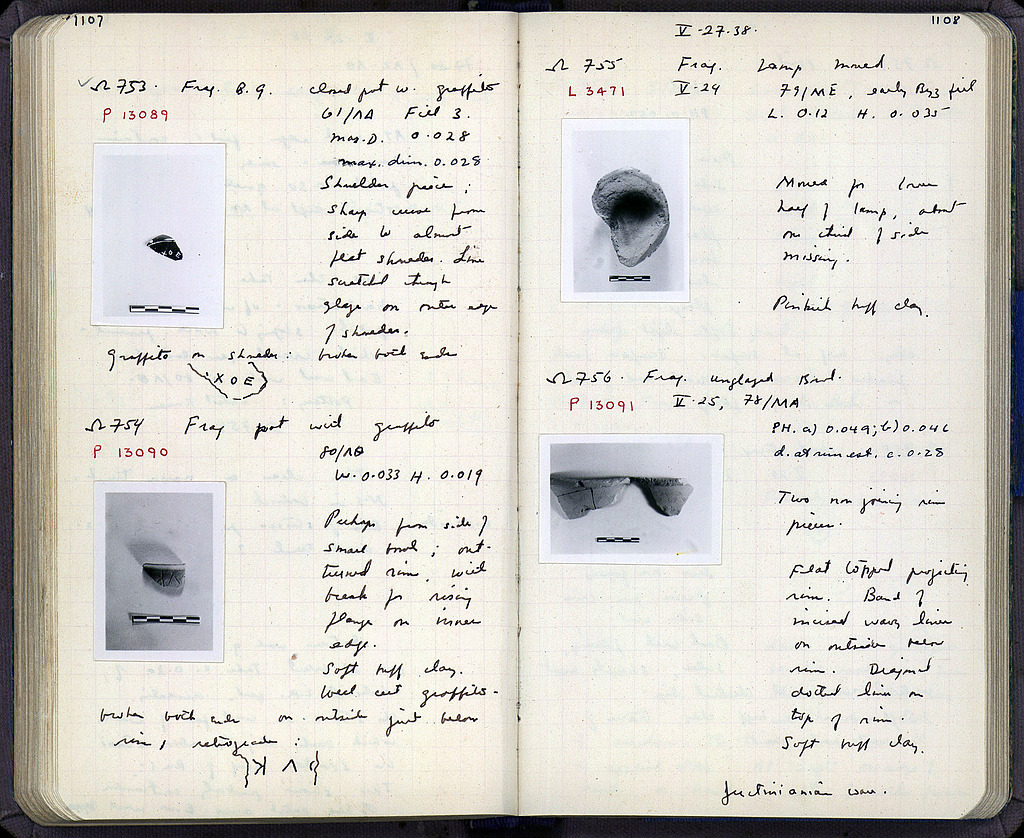 1107
Ω 753 Frag. B. G. closed pot w. graffito
P 13089
61/ΛΑ Fill 3.
max. D. 0.028
max. dim. 0.028
Shoulder piece ;
sharp curve from
side to almost
flat shoulder. Line
scratched through
glaze on outer edge
of shoulder.
graffito on shoulder : broken both ends
X O E
Ω 754 Frag pot with graffito
P 13090
80/ΛΘ
W. 0.033 H. 0.019
Perhaps from side of
small bowl ; out-
turned rim, with
break for rising
flange on inner
edge.
Soft buff clay.
Well cut graffito -
broken both ends on outside just below
rim, retrograde :
1108
V-27-38.
Ω 755 Frag. Lamp mould
L 3471 V-24 79/ΜΕ, early Byz fill
L. 0.12 H. 0.035
Mould for lower
half of lamp, about
one third of side
missing.
Pinkish buff clay.
Ω 756 Frag. unglazed Bowl.
P 13091 V-25, 78/ΜΑ
PH. a) 0.049; b) 0.046
d. at rim est. c. 0.28
Two non joining rim
pieces.
Flat topped projecting
rim. Band of
incised wavy lines
on outside below
rim. Diagonal
dotted lines on
top of rim.
Soft buff clay.
Justinianian ware.